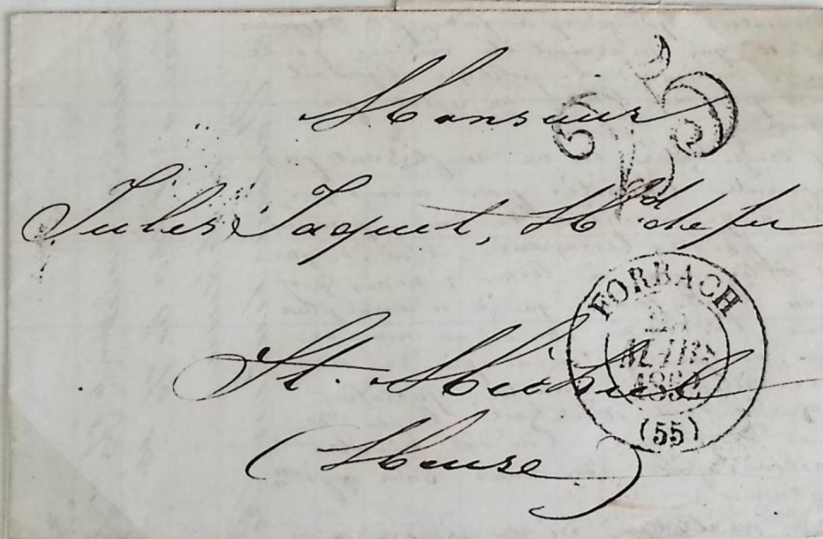 Monsieur
25
Jules Jaquet, Md de fer
FORBACH
1852
(55)
St. Mihiel
(Meuse)